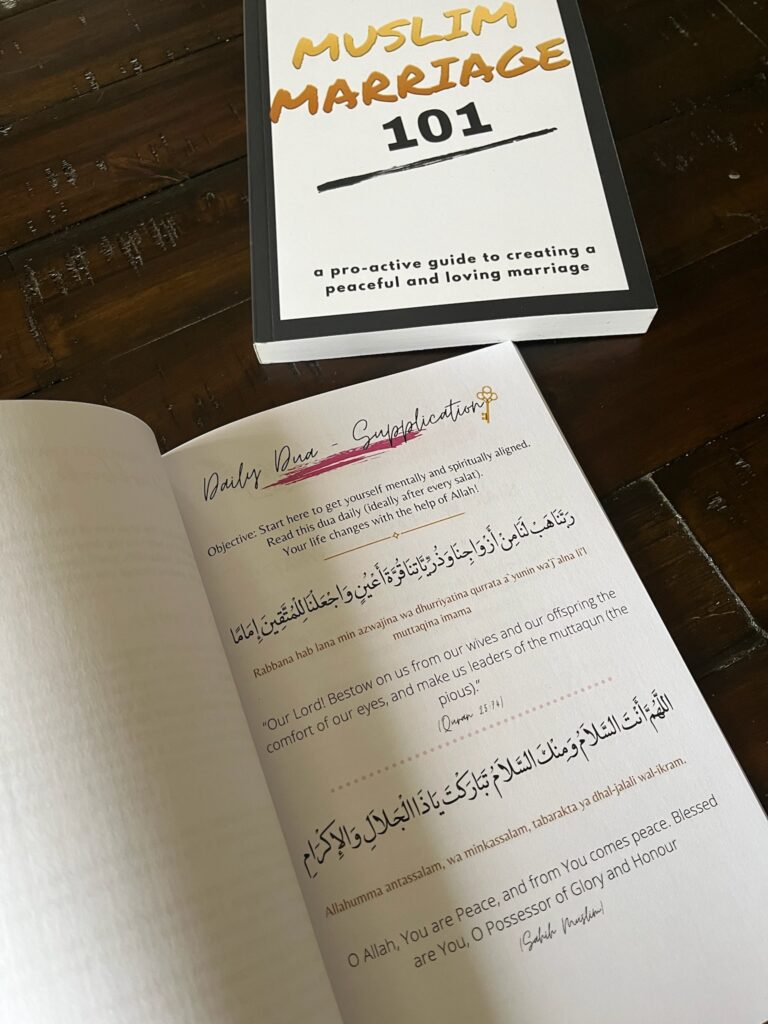 MUSLIM
MARRIAGE
101
a pro-active guide to creating a
peaceful and loving marriage
Daily Dua - Supplication
Objective: Start here to get yourself mentally and spiritually aligned.
Read this dua daily (ideally after every salat).
Your life changes with the help of Allah!
رَبَّنَا هَبْ لَنَا مِنْ أَزْوَاجِنَا وَذُرِّيَّاتِنَا قُرَّةَ أَعْيُنٍ وَاجْعَلْنَا لِلْمُتَّقِينَ إِمَامًا
Rabbana hab lana min azwajina wa dhurriyatina qurrata a`yunin wa'j`alna li'l
muttaqina imama
“Our Lord! Bestow on us from our wives and our offspring the
comfort of our eyes, and make us leaders of the muttaqun (the
pious).”
(Quran 25:74)
اللَّهُمَّ أَنْتَ السَّلاَمُ وَمِنْكَ السَّلاَمُ تَبَارَكْتَ يَا ذَا الْجَلاَلِ وَالإِكْرَامِ
Allahumma antassalam, wa minkassalam, tabarakta ya dhal-jalali wal-ikram.
O Allah, You are Peace, and from You comes peace. Blessed
are You, O Possessor of Glory and Honour
(Sahih Muslim)